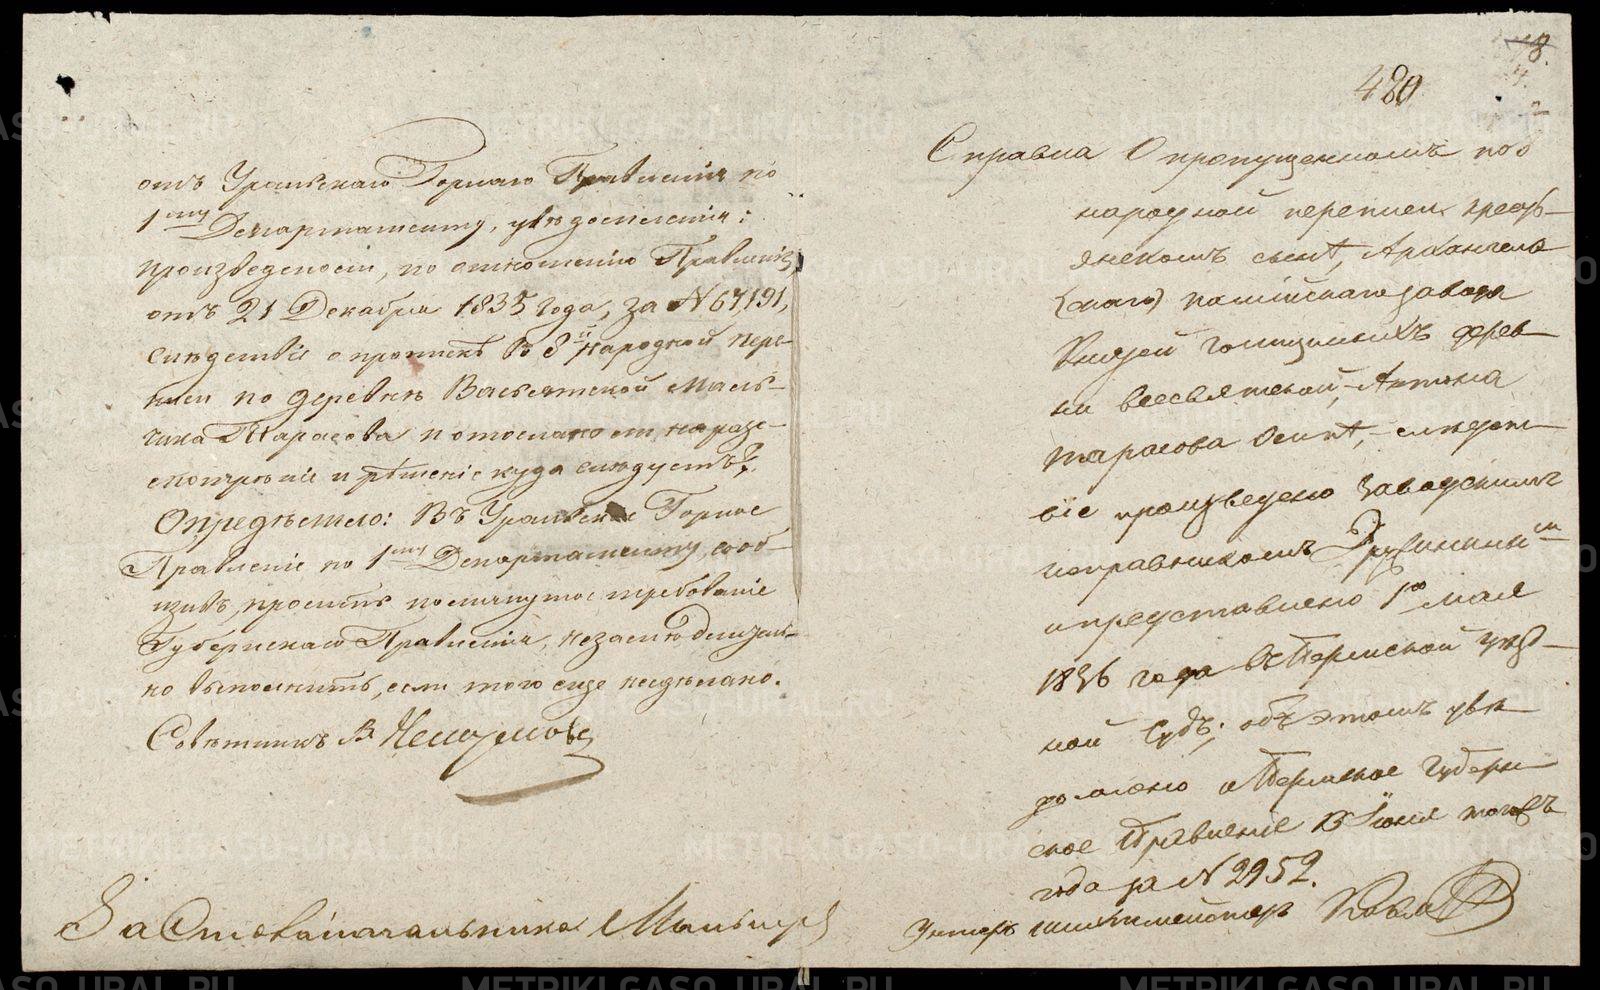 отъ Уральскаго Горнаго Правленія по
1му Департаменту, увѣдомленія:
произведено ли, по отношенію Правленія
отъ 21 Декабря 1835 года, за N 67,191,
слѣдствіе о пропискѣ въ 8й народной пере-
писи по деревнѣ Васьятской маль-
чика Тарасова и отослано ли, на раз-
смотрѣніе и рѣшеніе куда слѣдуетъ?.
Опредѣлено: Въ Уральское Горное
Правленіе по 1му Департаменту, сооб-
щивъ, просить помянутое требованіе
Губернскаго Правленія, незамедлитель-
но выполнить, если того еще несдѣлано.
Совѣтникъ В
За Столоначальника
480
Справка О пропущенномъ по 8
народной переписи кресть-
янскомъ сынѣ, Архангело
(скаго) пашійскаго завода
Князей Голицыныхъ дерев-
ни всесвятской, Антона
Тарасова Осипѣ, слѣдст-
віе произведено Заводскимъ
исправникомъ
и представлено 1го мая
1836 года въ Пермской уѣзд-
ной Судъ; объ этомъ увѣ
домлено и Пермское Губерн-
ское Правленіе 13 Іюня тогожъ
года за N 2952.
Унтеръ шихтмейстеръ
METRIKI.GASO-URAL.RU